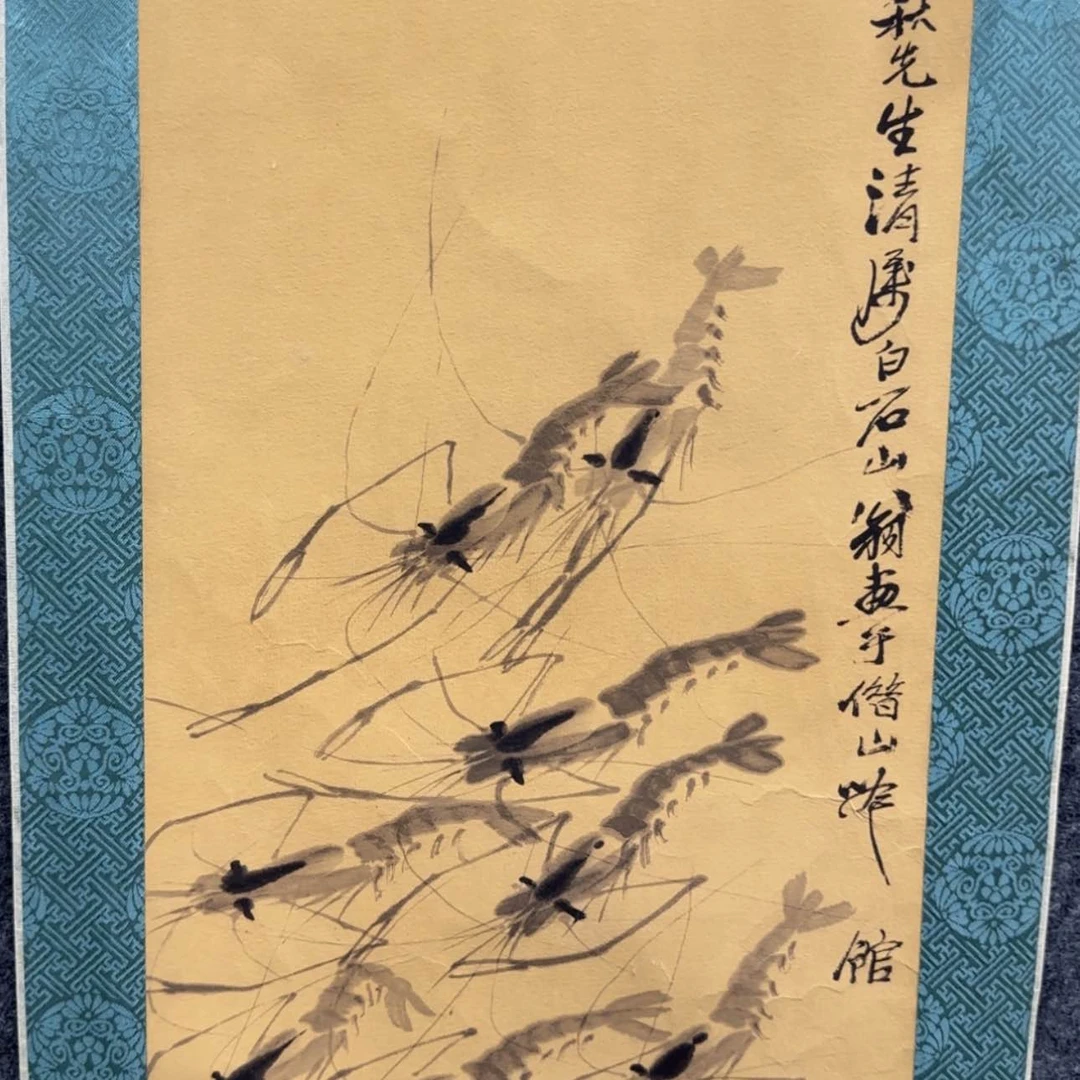 秋先生清属白石山翁画于借山吟館